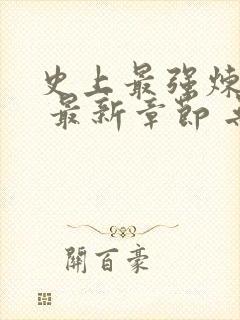 史上最强炼
最新章节
開百豪